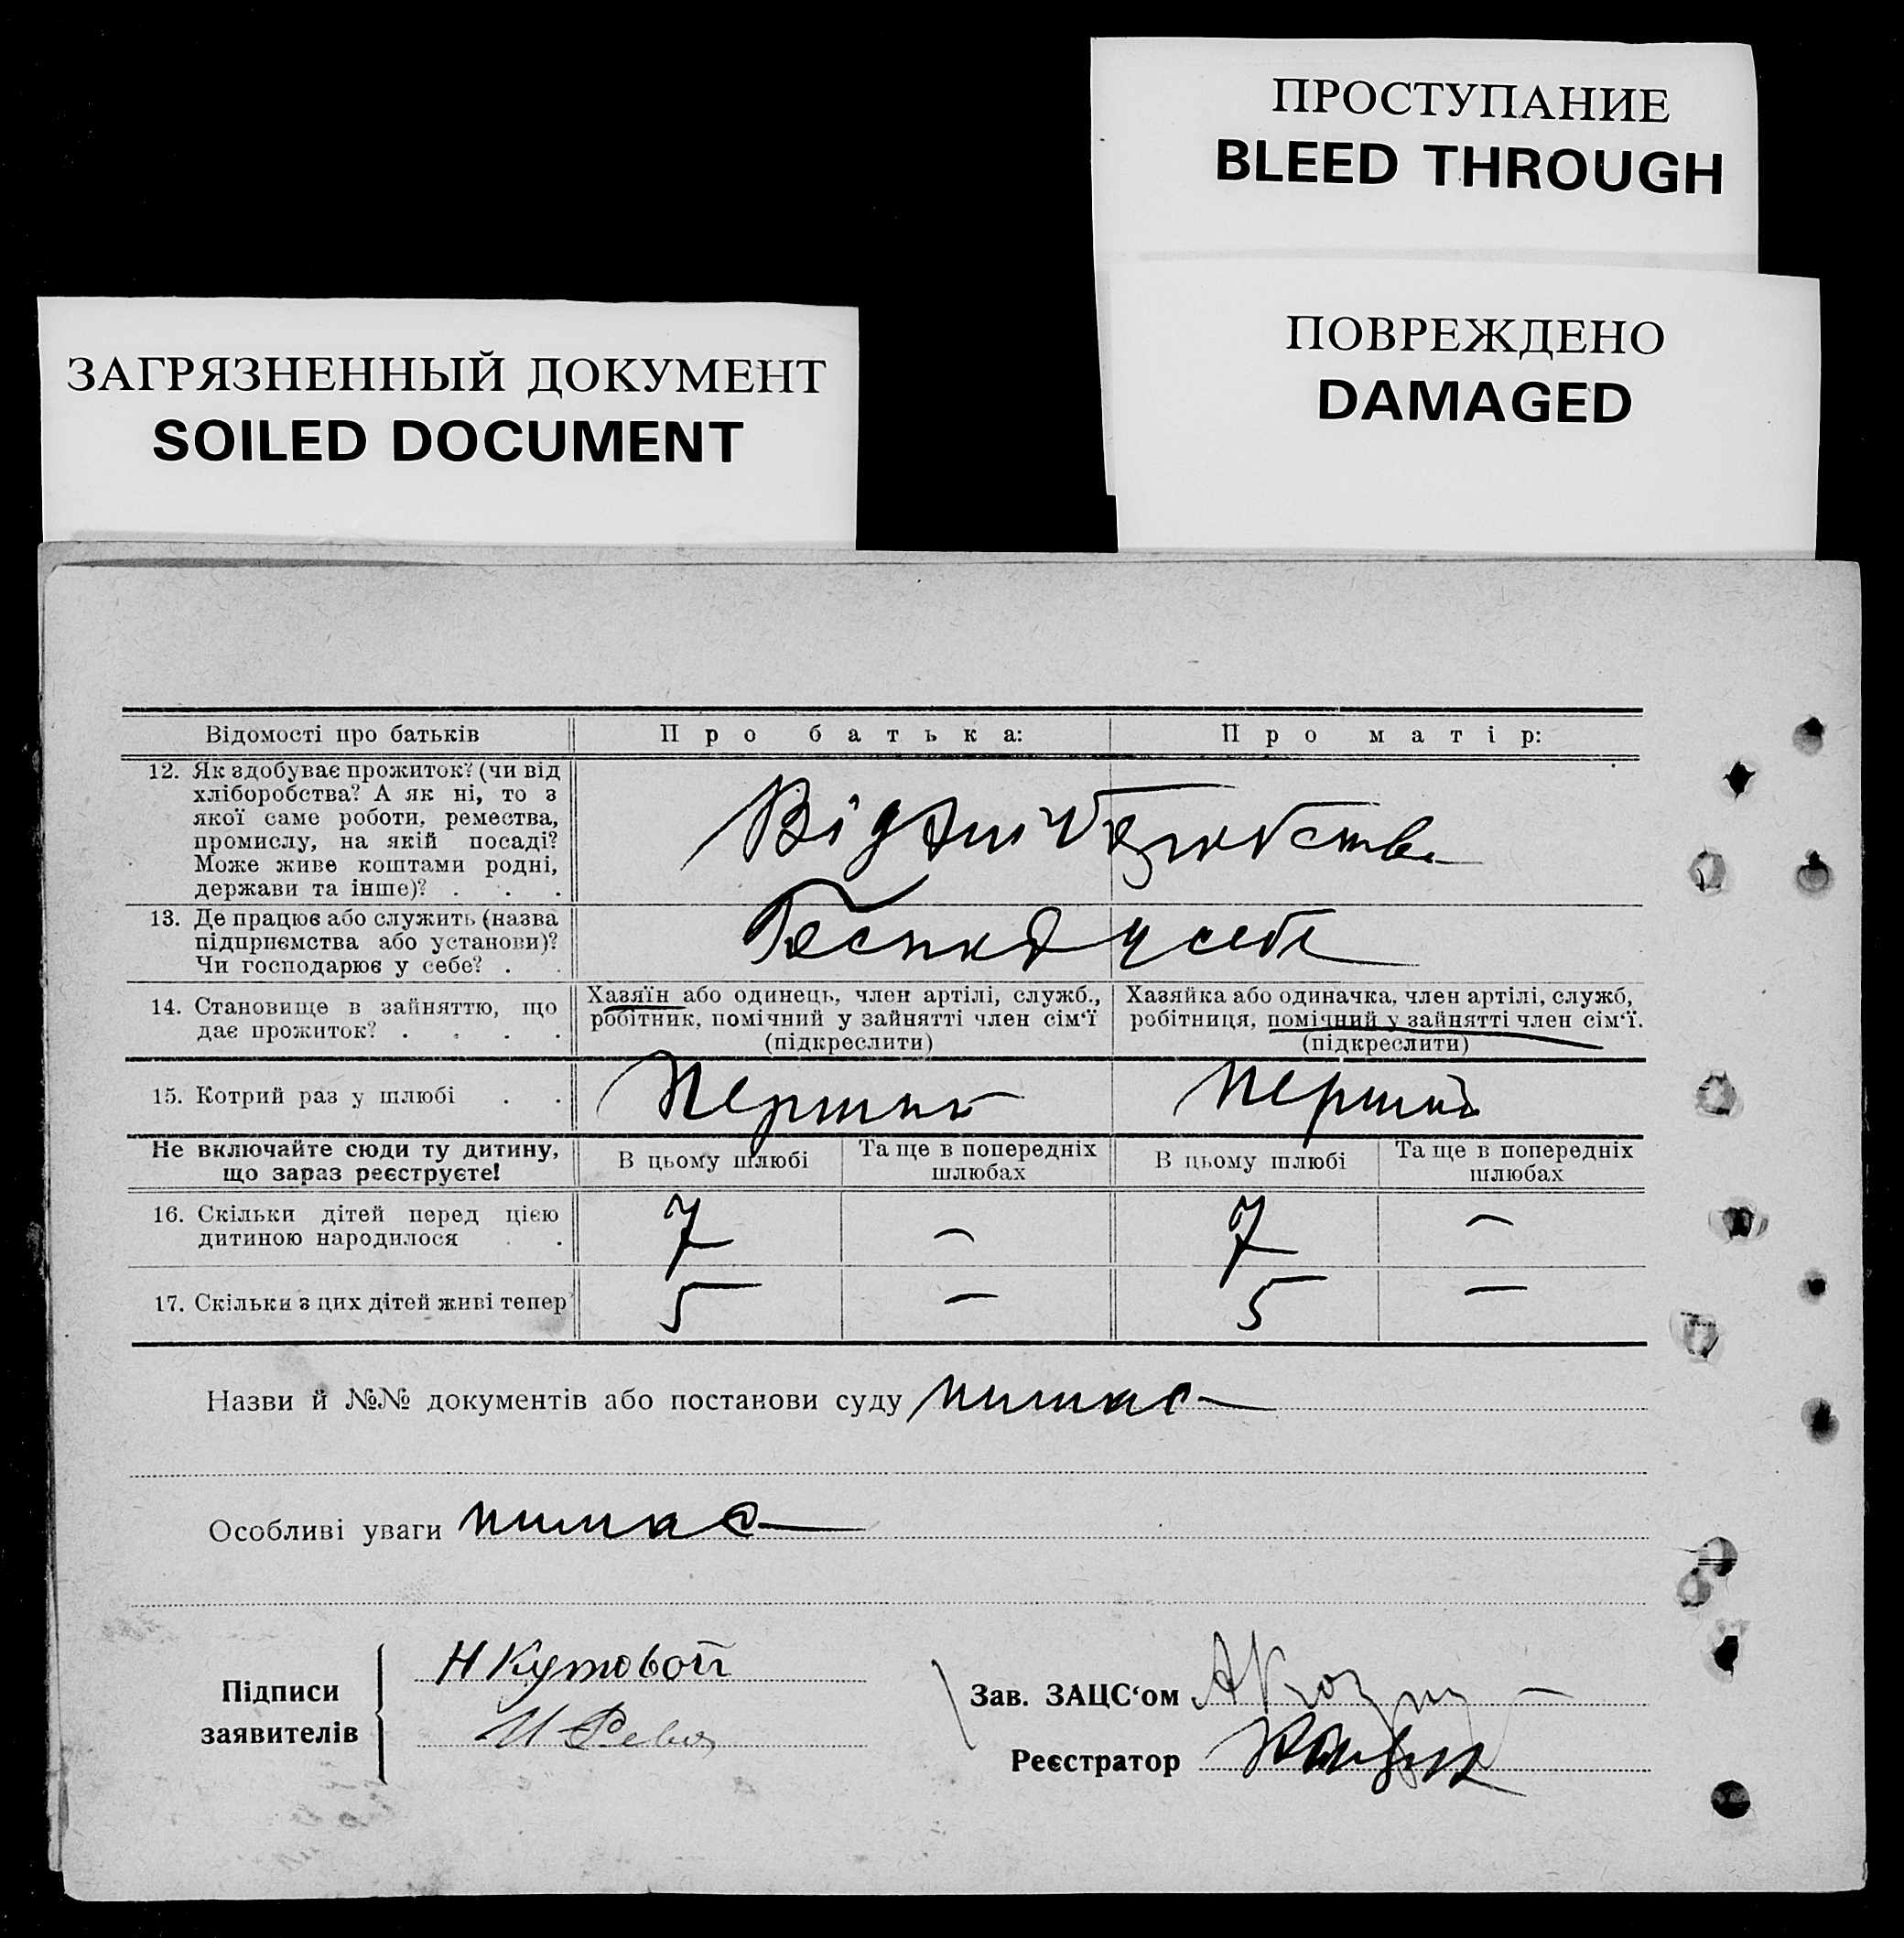 ПРОСТУПАНИЕ
BLEED THROUGH
ПОВРЕЖДЕНО
DAMAGED
ЗАГРЯЗНЕННЫЙ ДОКУМЕНТ
SOILED DOCUMENT
Відомості про батьків
Про батька:
Про матір:
12. Як здобуває прожиток? (чи від
хліборобства? А як ні, то з
якої саме роботи, ремества,
промислу, на якій посаді?
Може живе коштами родні,
держави та інше)? . . .
Від
13. Де працює або служить (назва
підприємства або установи)?
Чи господарює у себе? . .
у себе
14. Становище в зайняттю, що
дає прожиток? . . . .
Хазяїн або одинець, член артілі, служб.,
робітник, помічний у зайнятті член сім‘ї
(підкреслити)
Хазяйка або одиначка, член артілі, служб,
робітниця, помічний у зайнятті член сім‘ї.
(підкреслити)
15. Котрий раз у шлюбі . .
Перший
Перший
Не включайте сюди ту дитину,
що зараз реєструєте!
В цьому шлюбі
Та ще в попередніх
шлюбах
В цьому шлюбі
Та ще в попередніх
шлюбах
16. Скільки дітей перед цією
дитиною народилося . .
7
—
7
—
17. Скільки з цих дітей живі тепер
5
—
5
—
Назви й №№ документів або постанови суду
Особливі уваги
Підписи
заявителів
Н Кутовой
Зав. ЗАЦС‘ом
Реєстратор